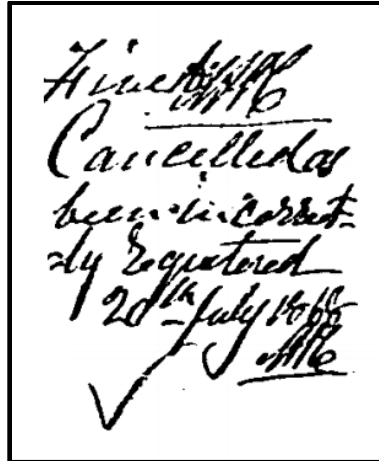 Cancelled as
been incorrect-
-ly registered
20th July 1868